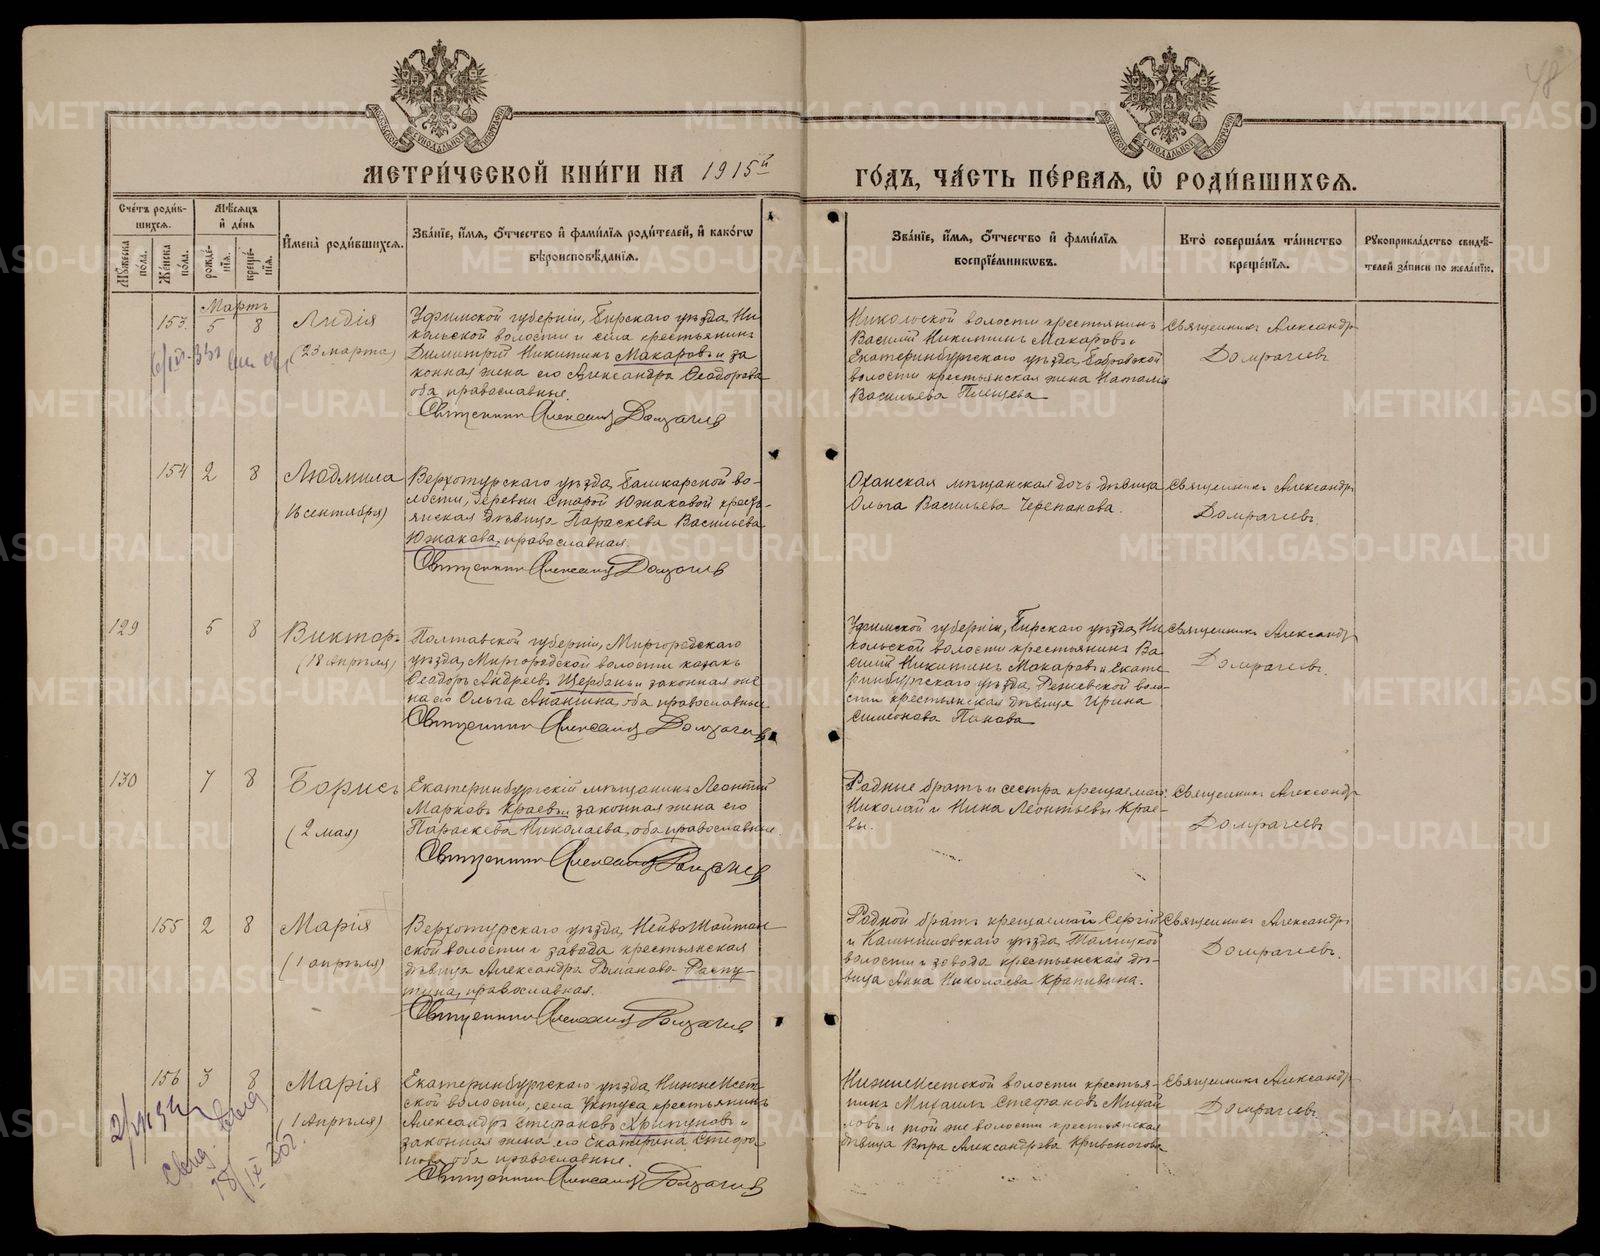 48
МЕТРИ́ЧЕСКОЙ КНИ́ГИ НА 1915й
ГО́ДЪ, ЧА́СТЬ ПЕ́РВАЯ, Ѡ РОДИ́ВШИХСЯ.
Сче́тъ роди́в-
шихся.
Му́жеска
по́ла.
Же́нска
по́ла.
Мѣ́сяцъ
и де́нь
рожде́-
нїя.
креще́-
нїя.
И́мена̀ роди́вшихся.
Зва́нїе, и́мя, ѻ́тчество и фами́лїя роди́телей, и како́гѡ
вѣроисповѣ́данїя.
Зва́нїе, и́мя, ѻ́тчество и фами́лїя
воспрїе́мникѡвъ.
Кто̀ соверша́лъ та́инство
креще́нїя.
Рꙋкоприкла́дство свидѣ́-
телей за́писи по жела́нїю.
Мартъ
153.
5
8
Лидія
(23 марта)
Уфимской губерніи, Бирскаго уѣзда, Ни-
кольской волости и села крестьянинъ
Димитрій Никитинъ Макаровъ и за
конная жена его Александра Ѳеодорова
оба православные.
Священникъ Александръ Домрачевъ
Никольской волости крестьянинъ
Василій Никитинъ Макаровъ и
Екатеринбургскаго уѣзда, Бобровской
волости крестьянская жена Наталія
Васильева
Священникъ Александръ
Домрачевъ
154
2
8
Людмила
(16 сентября)
Верхотурскаго уѣзда, Башкарской во-
лости, деревни Старой Южаковой кресть-
янская дѣвица Параскева Васильева
Южакова, православная.
Священникъ Александръ Домрачевъ
Оханская мѣщанская дочь дѣвица
Ольга Васильева Черепанова.
Священникъ Александръ
Домрачевъ.
129
5
8
Викторъ
(18 Апрѣля)
Полтавской губерніи, Миргородскаго
уѣзда, Миргородской волости казакъ
Ѳеодоръ Андреевъ Щербань и законная же
на его Ольга Ананіина, оба православные.
Священникъ Александръ Домрачевъ
Уфимской губерніи, Бирскаго уѣзда, Ни
кольской волости крестьянинъ Ва
силій Никитинъ Макаровъ и Екате
ринбургскаго уѣзда, Режевской воло-
сти крестьянская дѣвица Ирина
Симеонова Панова
Священникъ Александръ
Домрачевъ.
130
7
8
Борисъ
(2 мая)
Екатеринбургскій мѣщанинъ Леонтій
Марковъ Краевъ и законная жена его
Параскева Николаева, оба православные.
Священникъ Александръ Домрачевъ
Родные братъ и сестра крещаемаго
Николай и Нина Леонтьевы Крае-
вы.
Священникъ Александръ
Домрачевъ
155
2
8
Марія
(1 апрѣля)
Верхотурскаго уѣзда, Нейво Шайтан
ской волости и завода крестьянская
дѣвица Александра Романова Распу-
тина, православная.
Священникъ Александръ Домрачевъ
Родной братъ крещаемой Сергій
и Камышловскаго уѣзда, Талицкой
волости и завода крестьянская дѣ-
вица Анна Николаева Крапивина.
Священникъ Александръ
Домрачевъ.
156
3
8
Марія
(1 Апрѣля)
Екатеринбургскаго уѣзда, Нижне Исет-
ской волости, села Уктуса крестьянинъ
Александръ Стефановъ Хрипуновъ и
законная жена его Екатерина Стефа
нова, оба православные.
Священникъ Александръ Домрачевъ
Нижне Исетской волости крестья-
нинъ Михаилъ Стефановъ Михай
ловъ и той же волости крестьянская
дѣвица Вѣра Александрова Кривоногова
Священникъ Александръ
Домрачевъ.
METRIKI.GASO-URAL.RU